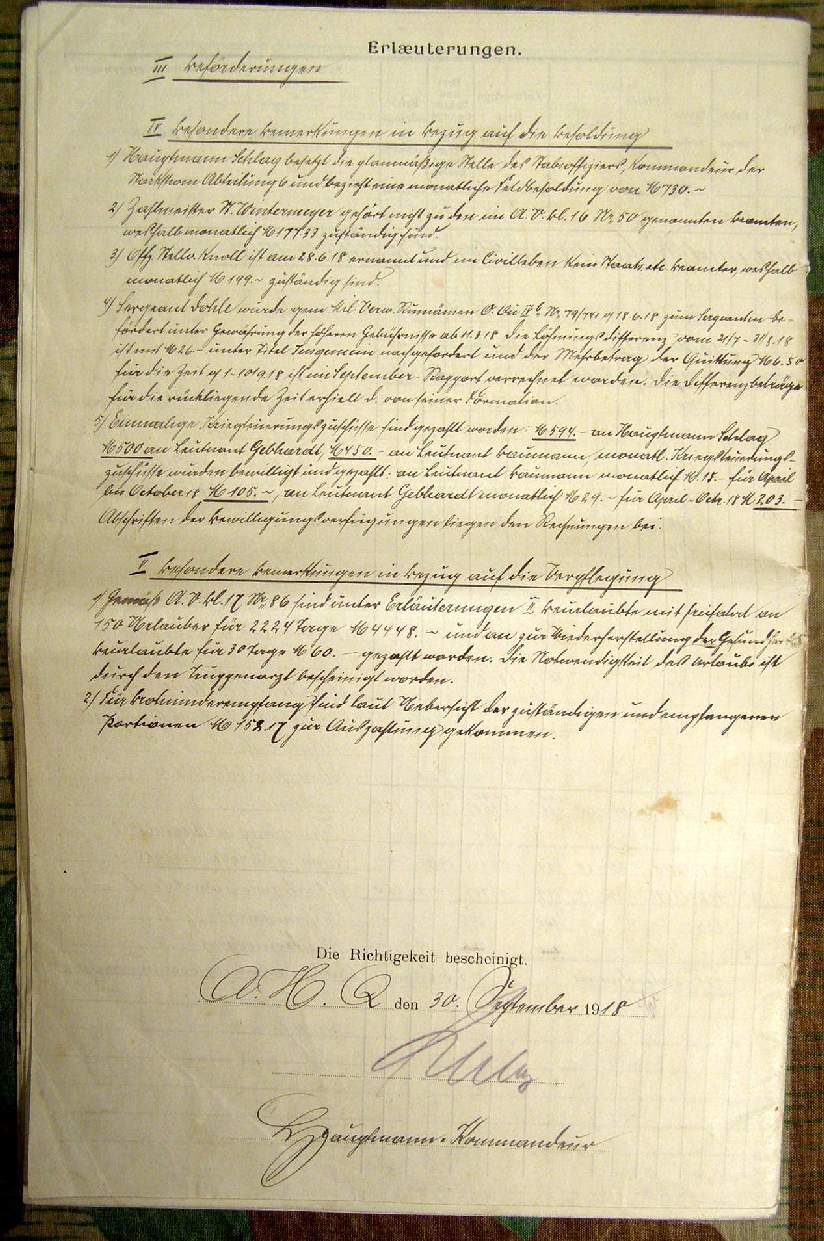 Erlæuterungen.
III Beförderungen
IV Besondere Bemerkungen in Bezug auf die Besoldung
1) Hauptmann Schlag besetzt die planmäßige Stelle des Stabsoffiziers, Kommandeur der
Starkstrom Abteilung 6 und bezieht eine monatliche Feldbesoldung von M 730.-
2) Zahlmeister W. Wintermeyer gehört nicht zu den im A.V.Bl. 16 Nr. 50 genannten Beamten,
weshalb monatlich M 177.33 zuständig sind
3) Knoll ist am 28.6.18 ernannt und im Civilleben kein Staats etc. Beamter, weshalb
monatlich M 199.- zuständig sind.
4) Sergeant Dohle wurde gem. Mil. Verw. Rumänien 18.6.18 zum Sergeanten be-
fördert unter Gewährung der höheren Gebührnisse ab 11.3.18 die Löhnungsdifferenz vom
ist mit M 26.- unter Titel nachgefordert und der Mehrbetrag der Quittung M 6.50
für die Zeit v. 1-10.9.18 ist im September-Rapport verrechnet worden. Die Differenzbeträge
für die rückliegende Zeit erhielt D. von seiner Formation.
5) Einmalige Kriegsteuerungszuschüsse sind gezahlt worden: M 594.- an Hauptmann Schlag
M 500 an Leutnant Gebhardt, M 450.- an Leutnant Baumann, monatl. Kriegsteuerungs-
zuschüsse wurden bewilligt und gezahlt: an Leutnant Baumann monatlich M 15.- für April
bis October 18 M 105.-, an Leutnant Gebhardt monatlich M 29.- für April-Octr. 18 M 203.-
Abschriften der Bewilligungsverfügungen liegen den Rechnungen bei.
V Besondere Bemerkungen in Bezug auf die Verpflegung
1) Gemäß A.V.Bl. 17 Nr. 86 sind unter Erläuterungen II Beurlaubte mit an
150 Urlauber für 2224 Tage M 4448.- und an zur Wiederherstellung der Gesundheit
Beurlaubte für 30 Tage M 60.- gezahlt worden. Die Notwendigkeit des Urlaubs ist
durch den Truppenarzt bescheinigt worden.
2) Für Brotminderempfang sind laut Uebersicht der zuständigen und empfangenen
Portionen M 158.17 zur Auszahlung gekommen.
Die Richtigekeit bescheinigt.
A. H. Q den 30. September 1918
Schlag
Hauptmann u. Kommandeur